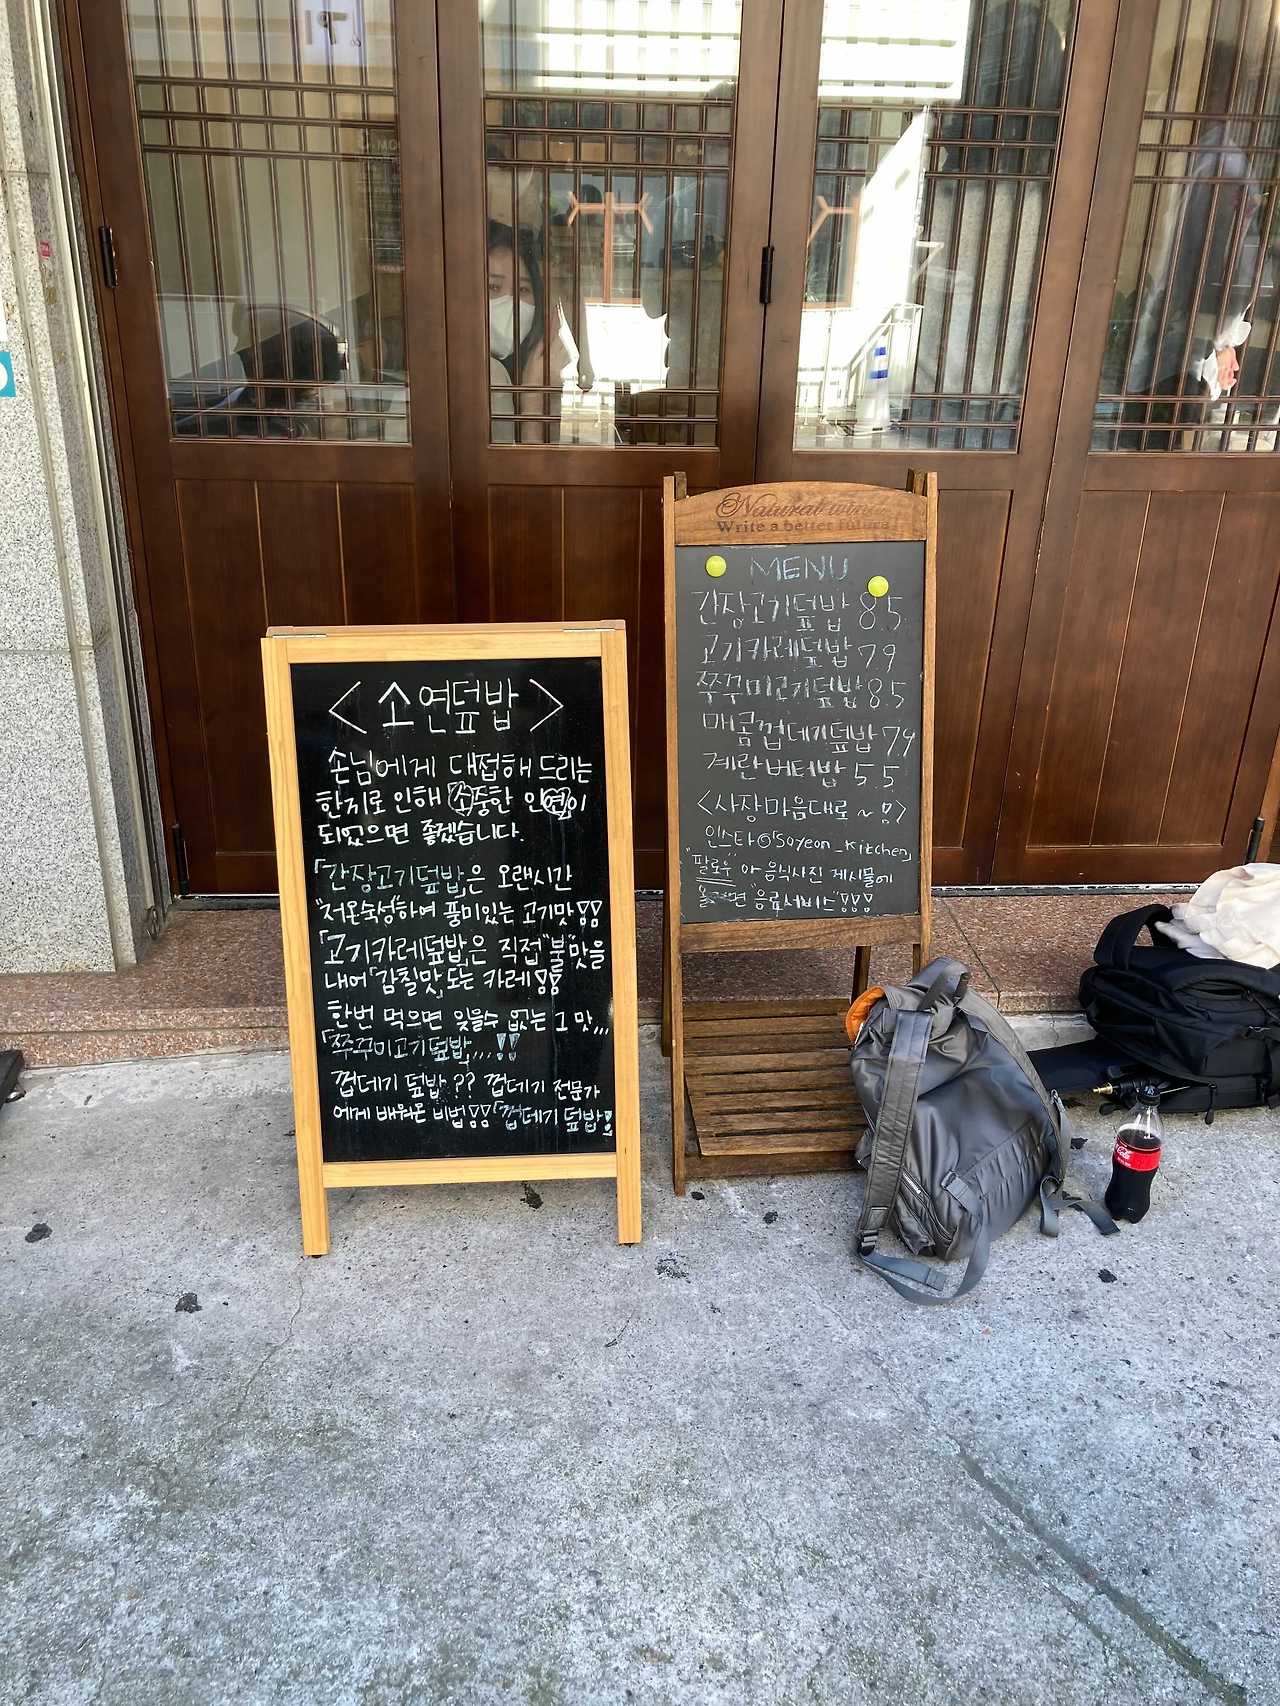 <소연덮밥>
손님에게 대접해 드리는
한끼로 인해 소중한 인연이
되었으면 좋겠습니다.
「간장고기덮밥」은 오랜시간
"저온숙성"하여 풍미있는 고기맛!!
「고기카레덮밥」은 직접 "불"맛을
내어 「감칠맛」도는 카레!!
한번 먹으면 잊을수 없는 그 맛...
「쭈꾸미고기덮밥」...!!
껍데기 덮밥?? 껍데기 전문가
에게 배워온 비법!! 「껍데기 덮밥」!
Natural wind
Write a better future
MENU
간장고기덮밥 8.5
고기카레덮밥 7.9
쭈꾸미고기덮밥 8.5
매콤껍데기덮밥 7.9
계란버터밥 5.5
<사장마음대로~!!>
인스타@"Soyeon_kitchen"
"팔로우" 와 음식사진 게시물에
올리면 "음료서비스"!!!